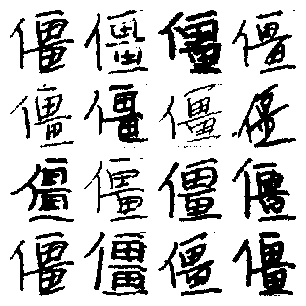 僵僵僵僵
僵僵僵僵
僵僵僵僵
僵僵僵僵